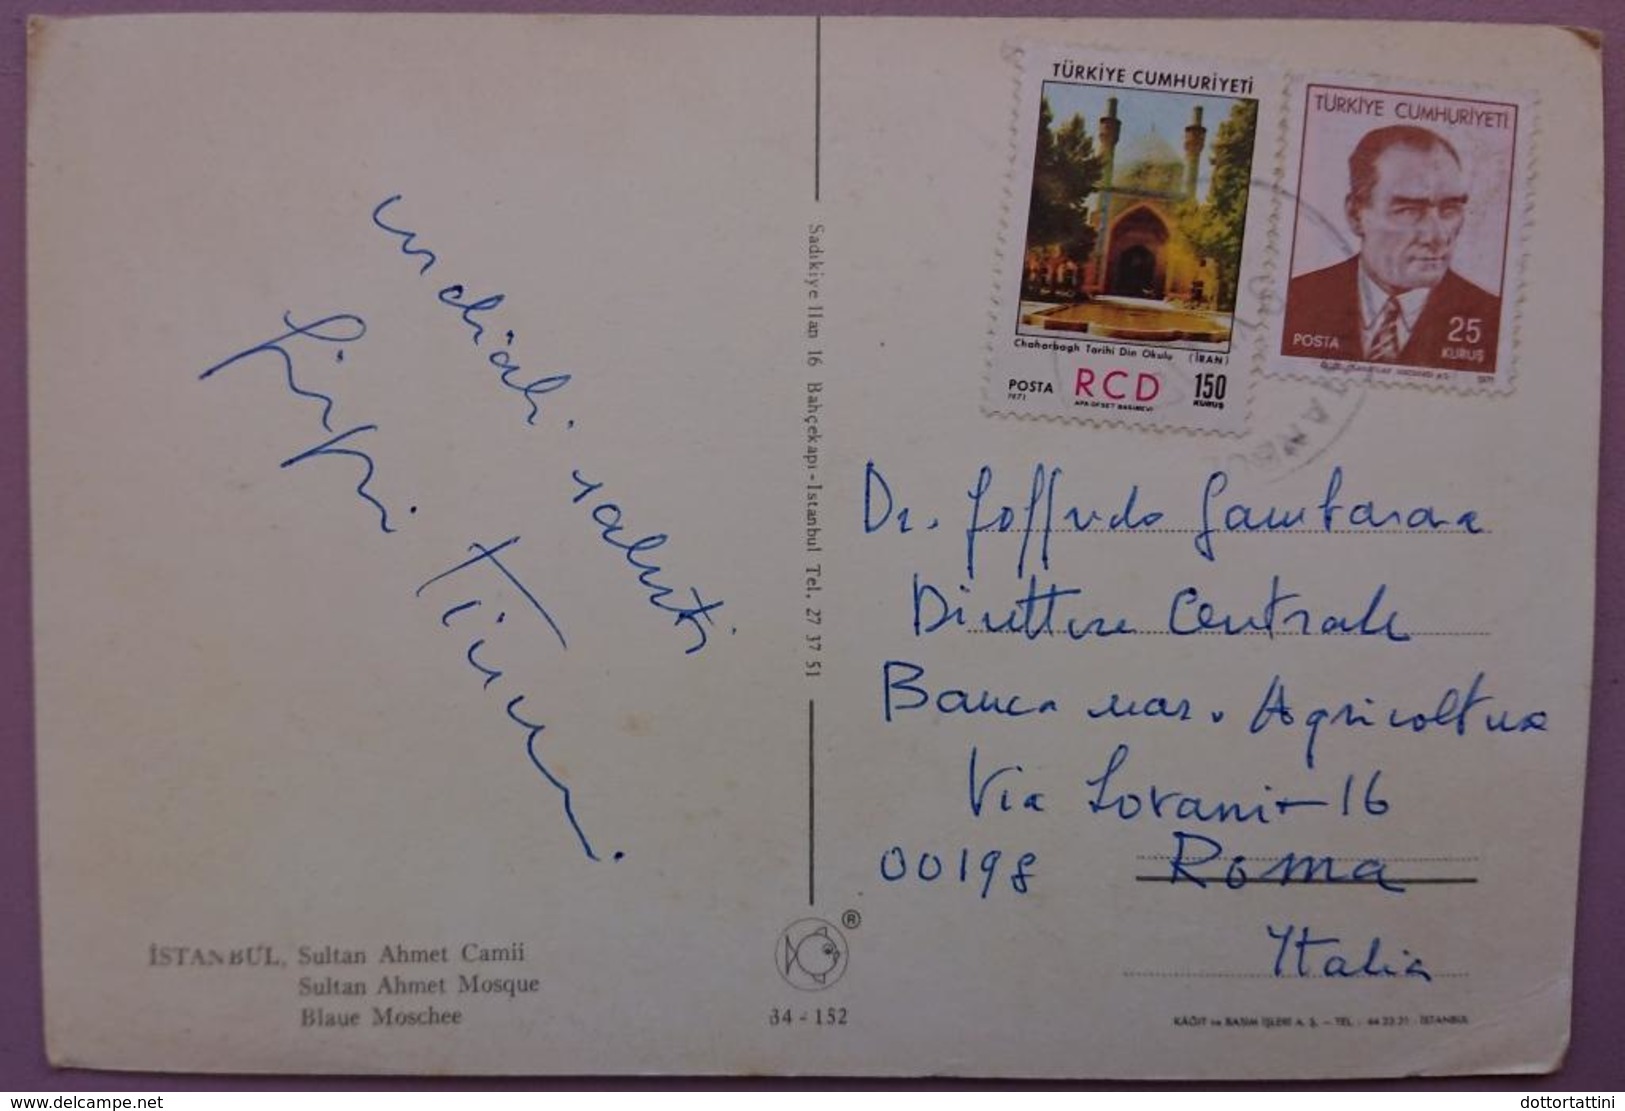 TÜRKİYE CUMHURİYETİ
Chaharbagh Tarihi Din Okulu (İRAN)
POSTA RCD 150
1971 KURUŞ
APA OFSET BASIMEVİ
TÜRKİYE CUMHURİYETİ
POSTA 25
KURUŞ
1971
cordiali saluti
Dr. Goffredo
Direttore Centrale
Banca naz. Agricoltura
Via Lovanio 16
00198 Roma
Italia
Sadıkiye Han 16 Bahçekapı - Istanbul Tel. 27 37 51
İSTANBUL, Sultan Ahmet Camii
Sultan Ahmet Mosque
Blaue Moschee
®
34 - 152
KÂĞIT ve BASIM İŞLERİ A. Ş. - TEL : 44 23 21 - İSTANBUL
www.delcampe.net
dottortattini